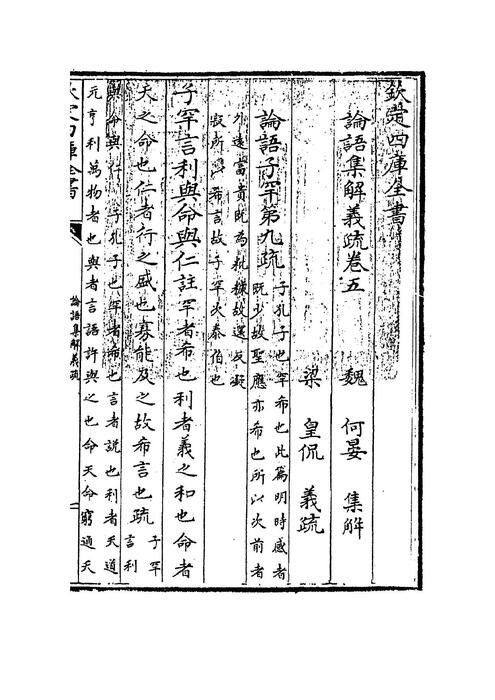 欽定四庫全書
論語集解義疏卷五
魏 何晏 集解
梁 皇侃 義疏
論語子罕第九疏
子孔子也罕希也此篇明時感者
既少故聖應亦希也所以次前者
外遠富貴既為粃糠故還反凝
寂所以希言故子罕次泰伯也
子罕言利與命與仁註罕者希也利者義之和也命者
天之命也仁者行之盛也寡能及之故希言也疏
子罕
言利
與命與仁 子孔子也罕者希也言者說也利者天道
元亨利萬物者也與者言語許與之也命天命窮通夭
欽定四庫全書
論語集解義疏
一